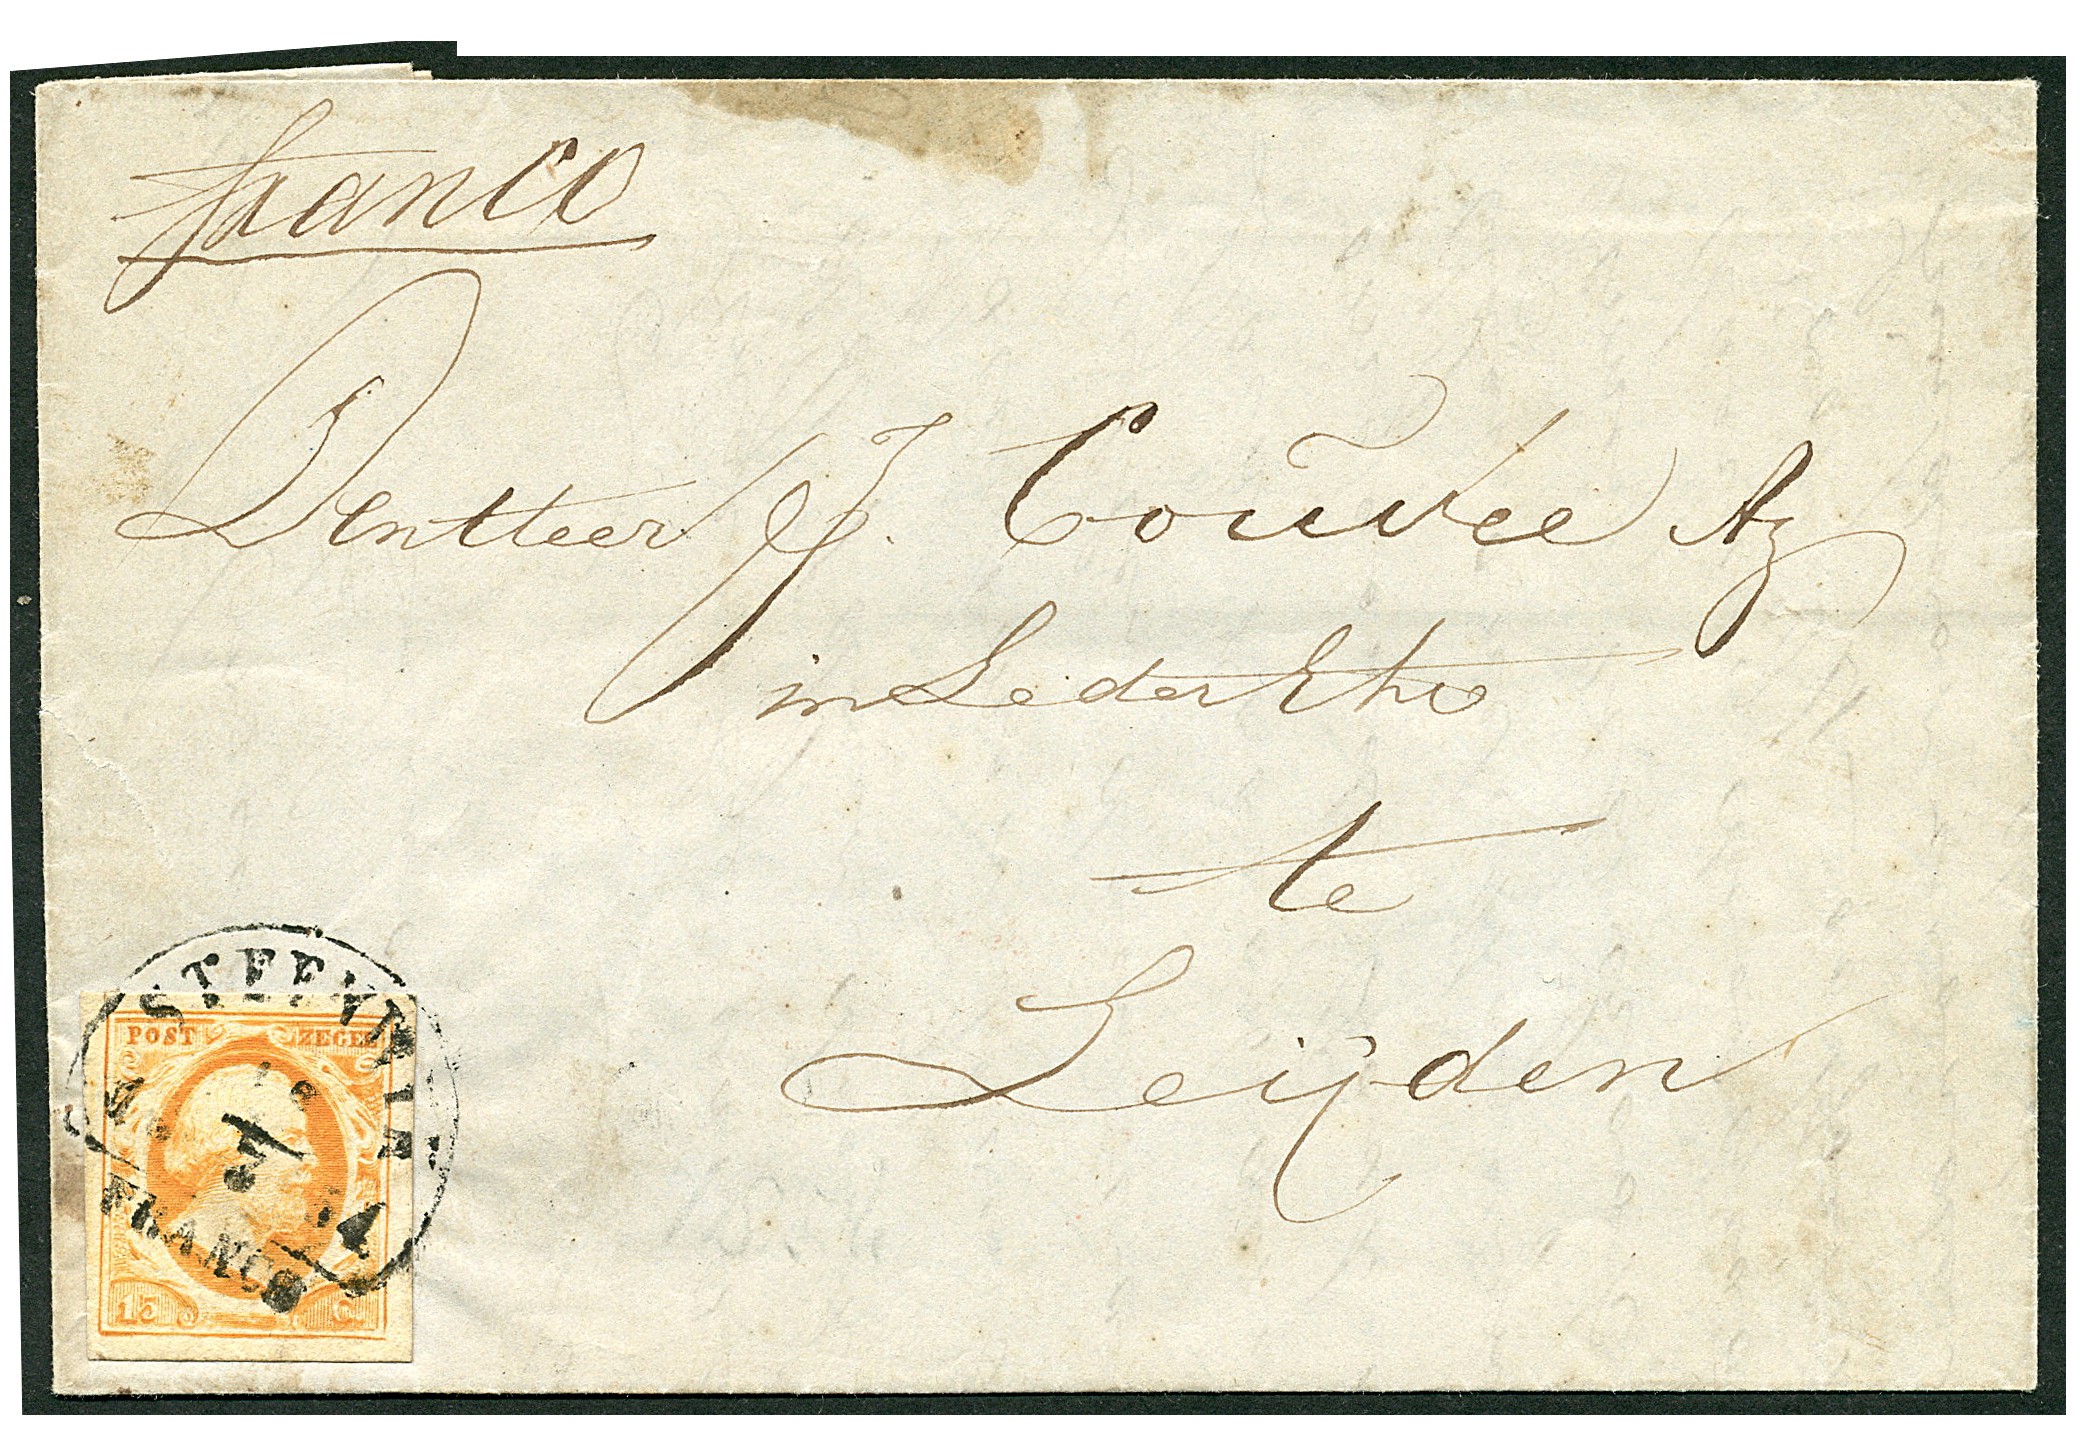 franco
Den Heer J. Couvee Az
in Leder &tra
te
Leijden
STEENWIJK
FRANCO
POST ZEGEL
15 C.